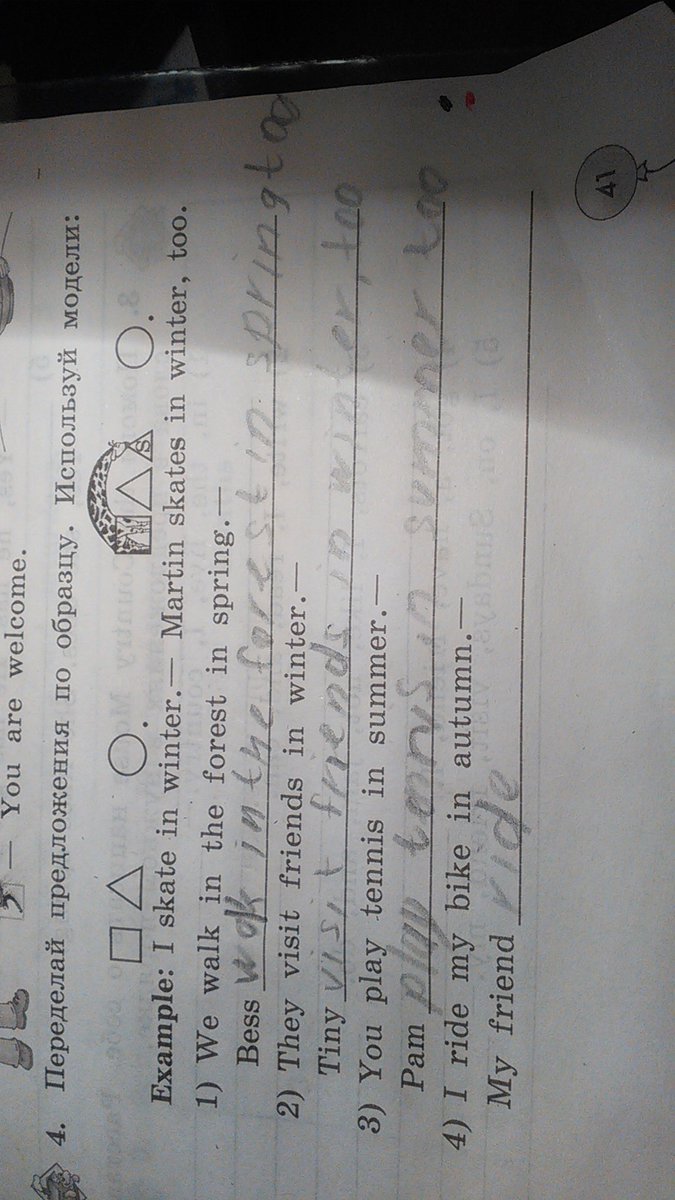 — You are welcome.
4. Переделай предложения по образцу. Используй модели:
s
Example: I skate in winter.— Martin skates in winter, too.
1) We walk in the forest in spring.—
Bess wok in the forest in spring too
2) They visit friends in winter.—
Tiny visit friends in winter, too
3) You play tennis in summer.—
Pam play tennis in summer too
4) I ride my bike in autumn.—
My friend ride
41